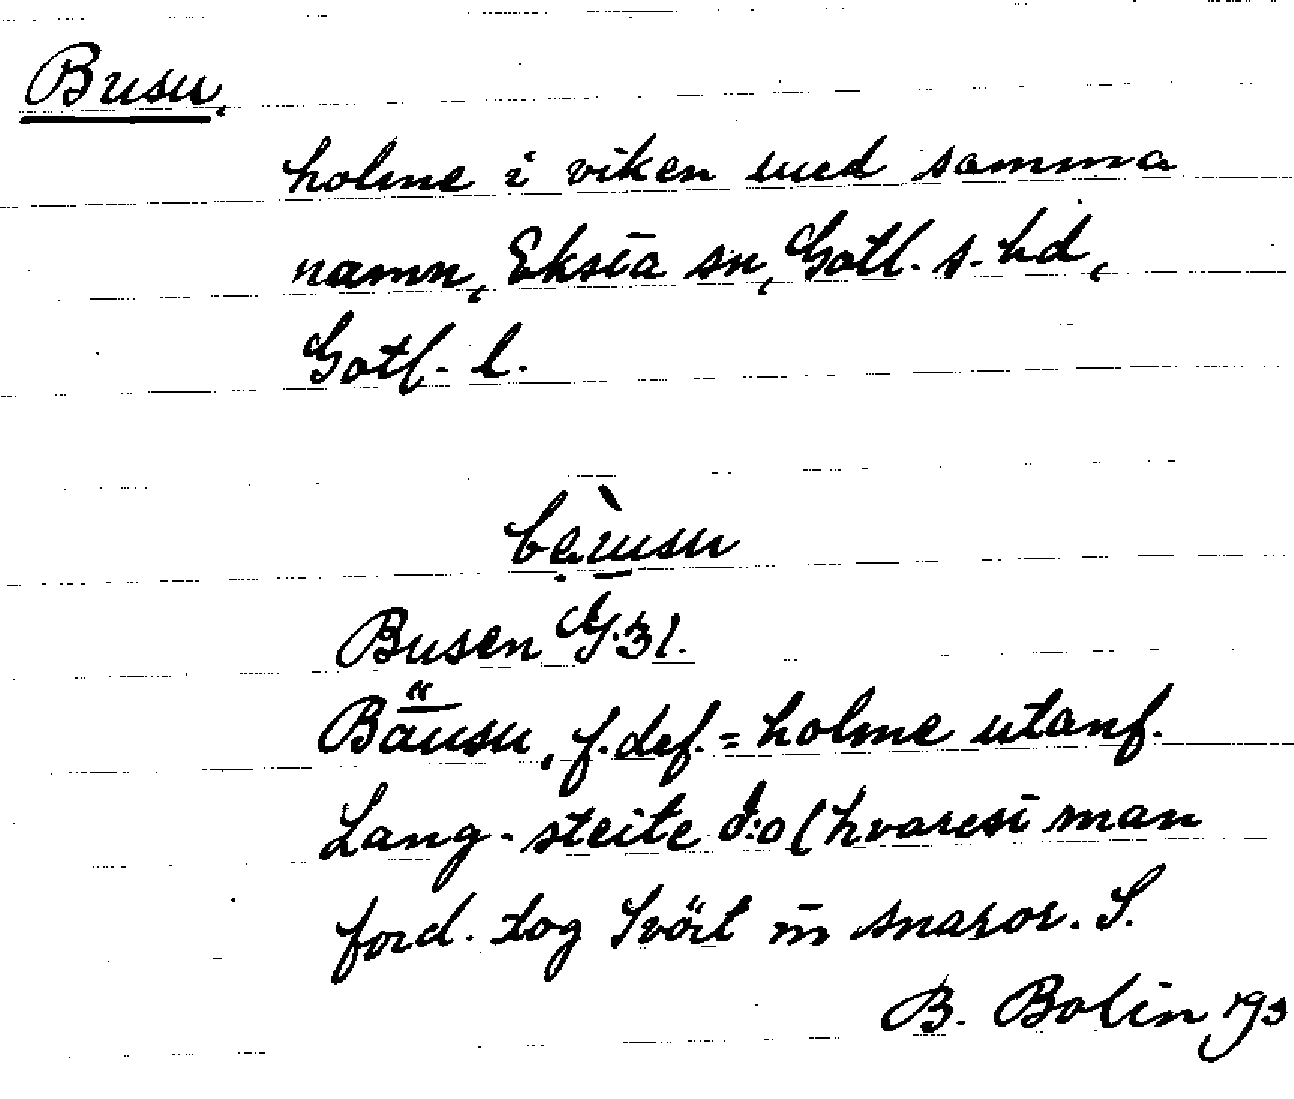 Busu.
holme i viken med samma
namn, Eksta sn, Gotl. s. hd,
Gotl. l.
bè̤̖usu
Busen G. 31.
Bäusu, f. def. = holme utanf.
Lang-steite d:o (hvarest man
ford. tog Svärt m̄ snaror. S.
B. Bolin 193